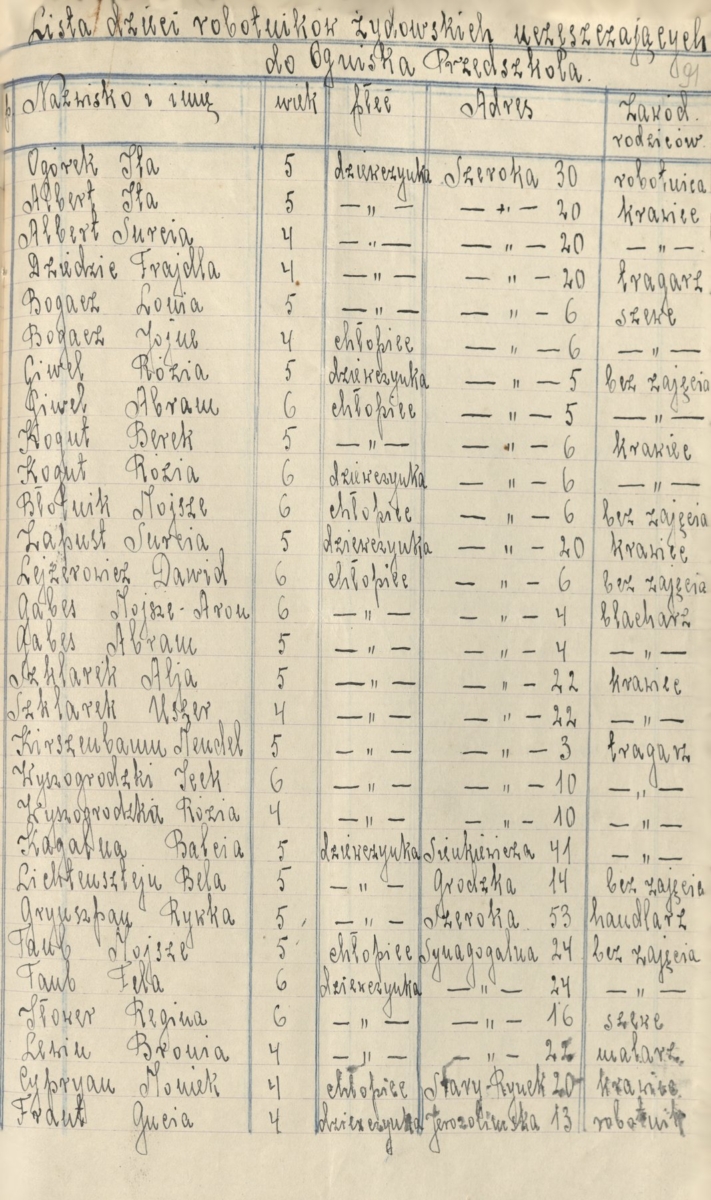 Lista dzieci robotników żydowskich uczęszczających
do Ogniska Przedszkola.
91
Nazwisko i imię wiek płeć Adres Zawód rodziców
Ogórek Ita 5 dziewczynka Szeroka 30 robotnica
Albert Ita 5 — „ — — „ — 20 krawiec
Albert Surcia 4 — „ — — „ — 20 — „ —
Dziedzic Frajdla 4 — „ — — „ — 20 tragarz
Bogacz Lonia 5 — „ — — „ — 6 szewc
Bogacz Jojne 4 chłopiec — „ — 6 — „ —
Giwel Rózia 5 dziewczynka — „ — 5 bez zajęcia
Giwel Abram 6 chłopiec — „ — 5 — „ —
Kogut Berek 5 — „ — — „ — 6 krawiec
Kogut Rózia 6 dziewczynka — „ — 6 — „ —
Błotnik Mojsze 6 chłopiec — „ — 6 bez zajęcia
Zapust Surcia 5 dziewczynka — „ — 20 krawiec
Lejzerowicz Dawid 6 chłopiec — „ — 6 bez zajęcia
Gabes Mojsze-Aron 6 — „ — — „ — 4 blacharz
Gabes Abram 5 — „ — — „ — 4 — „ —
Szklarek Alja 5 — „ — — „ — 22 krawiec
Szklarek Uszer 4 — „ — — „ — 22 — „ —
Kirszenbaum Mendel 5 — „ — — „ — 3 tragarz
Wyszogrodzki Icek 6 — „ — — „ — 10 — „ —
Wyszogrodzka Rózia 4 — „ — — „ — 10 — „ —
Kagalna Balcia 5 dziewczynka Sienkiewicza 41 — „ —
Lichtensztejn Bela 5 — „ — Grodzka 14 bez zajęcia
Grynszpan Rywka 5 — „ — Szeroka 53 handlarz
Taub Mojsze 5 chłopiec Synagogalna 24 bez zajęcia
Taub Feba 6 dziewczynka — „ — 24 — „ —
Słower Regina 6 — „ — — „ — 16 szewc
Lewin Bronia 4 — „ — — „ — 22 malarz
Cypryan Moniek 4 chłopiec Stary-Rynek 20 krawiec
Frant Gucia 4 dziewczynka Jerozolimska 13 robotnik